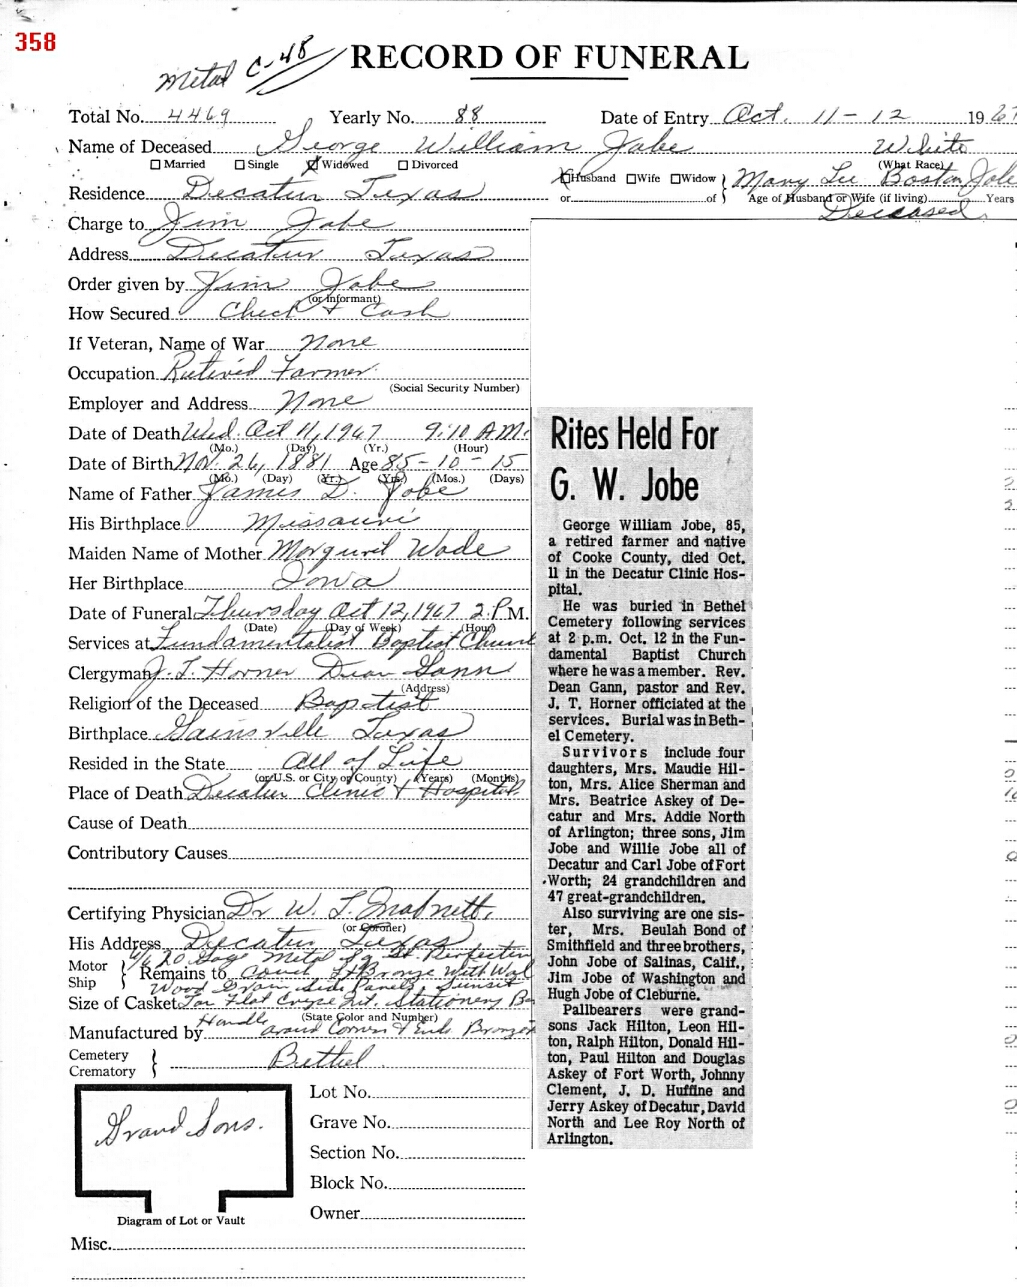 358
Metal C-48
RECORD OF FUNERAL
Total No. 4469 Yearly No. 88 Date of Entry Oct. 11-12 1967
Name of Deceased George William Jobe White
☐ Married ☐ Single ☒ Widowed ☐ Divorced (What Race)
☒ Husband ☐ Wife ☐ Widow } Mary Lee Boston Jobe
Residence Decatur Texas or of Age of Husband or Wife (if living) Years
Deceased
Charge to Jim Jobe
Address Decatur Texas
Order given by Jim Jobe
(or Informant)
How Secured Check & Cash
If Veteran, Name of War None
Occupation Retired Farmer
(Social Security Number)
Employer and Address None
Date of Death Wed. Oct 11, 1967 9:10 A.M.
(Mo.) (Day) (Yr.) (Hour)
Date of Birth Nov. 26, 1881 Age 85-10-15
(Mo.) (Day) (Yr.) (Yrs.) (Mos.) (Days)
Name of Father James D. Jobe
His Birthplace Missouri
Maiden Name of Mother Wade
Her Birthplace Iowa
Date of Funeral Thursday Oct 12, 1967 2 P.M.
(Date) (Day of Week) (Hour)
Services at Fundamentalist Baptist Church
Clergyman J. T. Horner Dean Gann
(Address)
Religion of the Deceased Baptist
Birthplace Gainsville Texas
Resided in the State All of Life
(or U.S. or City or County) (Years) (Months)
Place of Death Decatur Clinic & Hospital
Cause of Death
Contributory Causes
Certifying Physician Dr. W. L.
(or Coroner)
His Address Decatur Texas
Motor Ship } Remains to
6/6 20 Gage Metal Sq.
Lt Bronze With
Wood Grain Side Panels, Sunset
Size of Casket Tan Flat Crepe Int. Stationery
(State Color and Number)
Manufactured by Handle around Corners & Ends Bronze
Cemetery Crematory } Bethel
Grand Sons.
Lot No.
Grave No.
Section No.
Block No.
Owner
Diagram of Lot or Vault
Misc.
Rites Held For
G. W. Jobe
George William Jobe, 85,
a retired farmer and native
of Cooke County, died Oct.
11 in the Decatur Clinic Hos-
pital.
He was buried in Bethel
Cemetery following services
at 2 p.m. Oct. 12 in the Fun-
damental Baptist Church
where he was a member. Rev.
Dean Gann, pastor and Rev.
J. T. Horner officiated at the
services. Burial was in Beth-
el Cemetery.
Survivors include four
daughters, Mrs. Maudie Hil-
ton, Mrs. Alice Sherman and
Mrs. Beatrice Askey of De-
catur and Mrs. Addie North
of Arlington; three sons, Jim
Jobe and Willie Jobe all of
Decatur and Carl Jobe of Fort
Worth; 24 grandchildren and
47 great-grandchildren.
Also surviving are one sis-
ter, Mrs. Beulah Bond of
Smithfield and three brothers,
John Jobe of Salinas, Calif.,
Jim Jobe of Washington and
Hugh Jobe of Cleburne.
Pallbearers were grand-
sons Jack Hilton, Leon Hil-
ton, Ralph Hilton, Donald Hil-
ton, Paul Hilton and Douglas
Askey of Fort Worth, Johnny
Clement, J. D. Huffine and
Jerry Askey of Decatur, David
North and Lee Roy North of
Arlington.